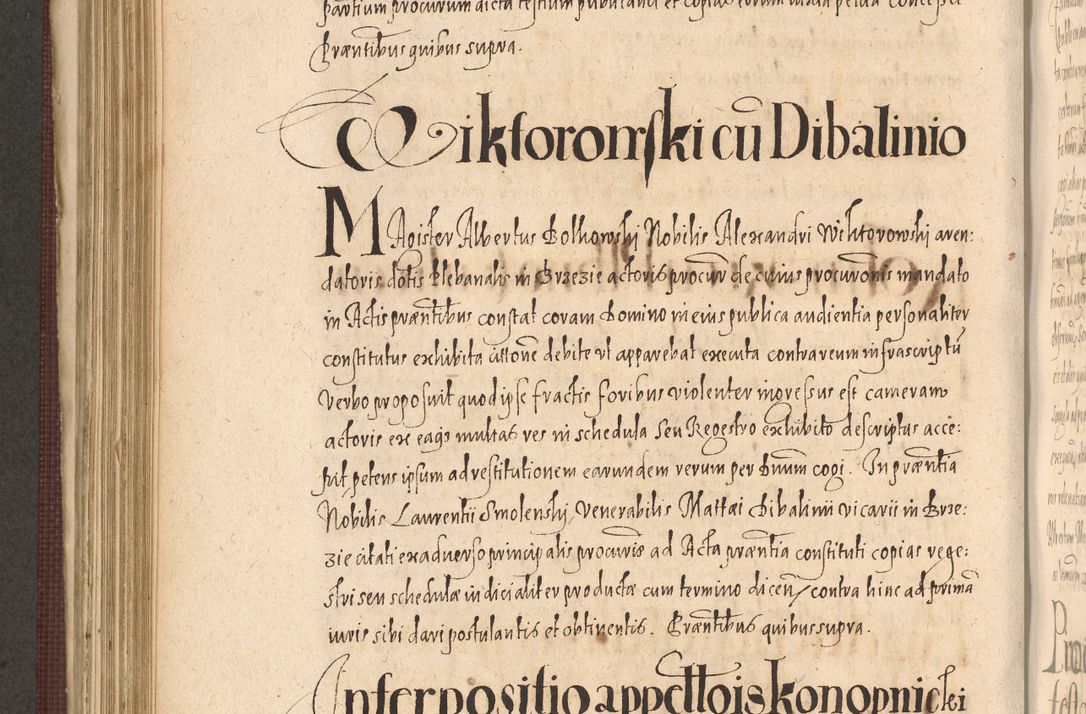 partium procurum dicta testium publicandi et copia eorum
Præntibus quibus supra.
Wiktorowski cū Dibalinio
MAgister Albertus Bolkowski Nobilis Alexandri Wiktorowski aren:
datoris dotis Plebanalis in Brzezie actoris procur de cuius procuronis mandato
in Actis præntibus constat coram Domino in eius publica audientia personaliter
constitutus exhibita citione debite ut apparebat executa contra reum infrascriptū
verbo proposuit quod ipse fractis foribus violenter ingressus est cameram
actoris ex eaqs multas res in schedula seu Regestro exhibito descriptas acce:
pit petens ipsum ad restitutionem earundem rerum per Dnum cogi. In præntia
Nobilis Laurentii Smolenski, Venerabilis Mattæi Dibalinii vicarii in Brze:
zie citati ex adverso principalis procuris ad Acta præntia constituti copias rege:
stri seu schedulæ iudicialiter productæ cum termino dicen / contra hinc ad primā
iuris sibi dari postulantis et obtinentis. Præntibus quibus supra.
Interpositio appelltōis Konopnicki